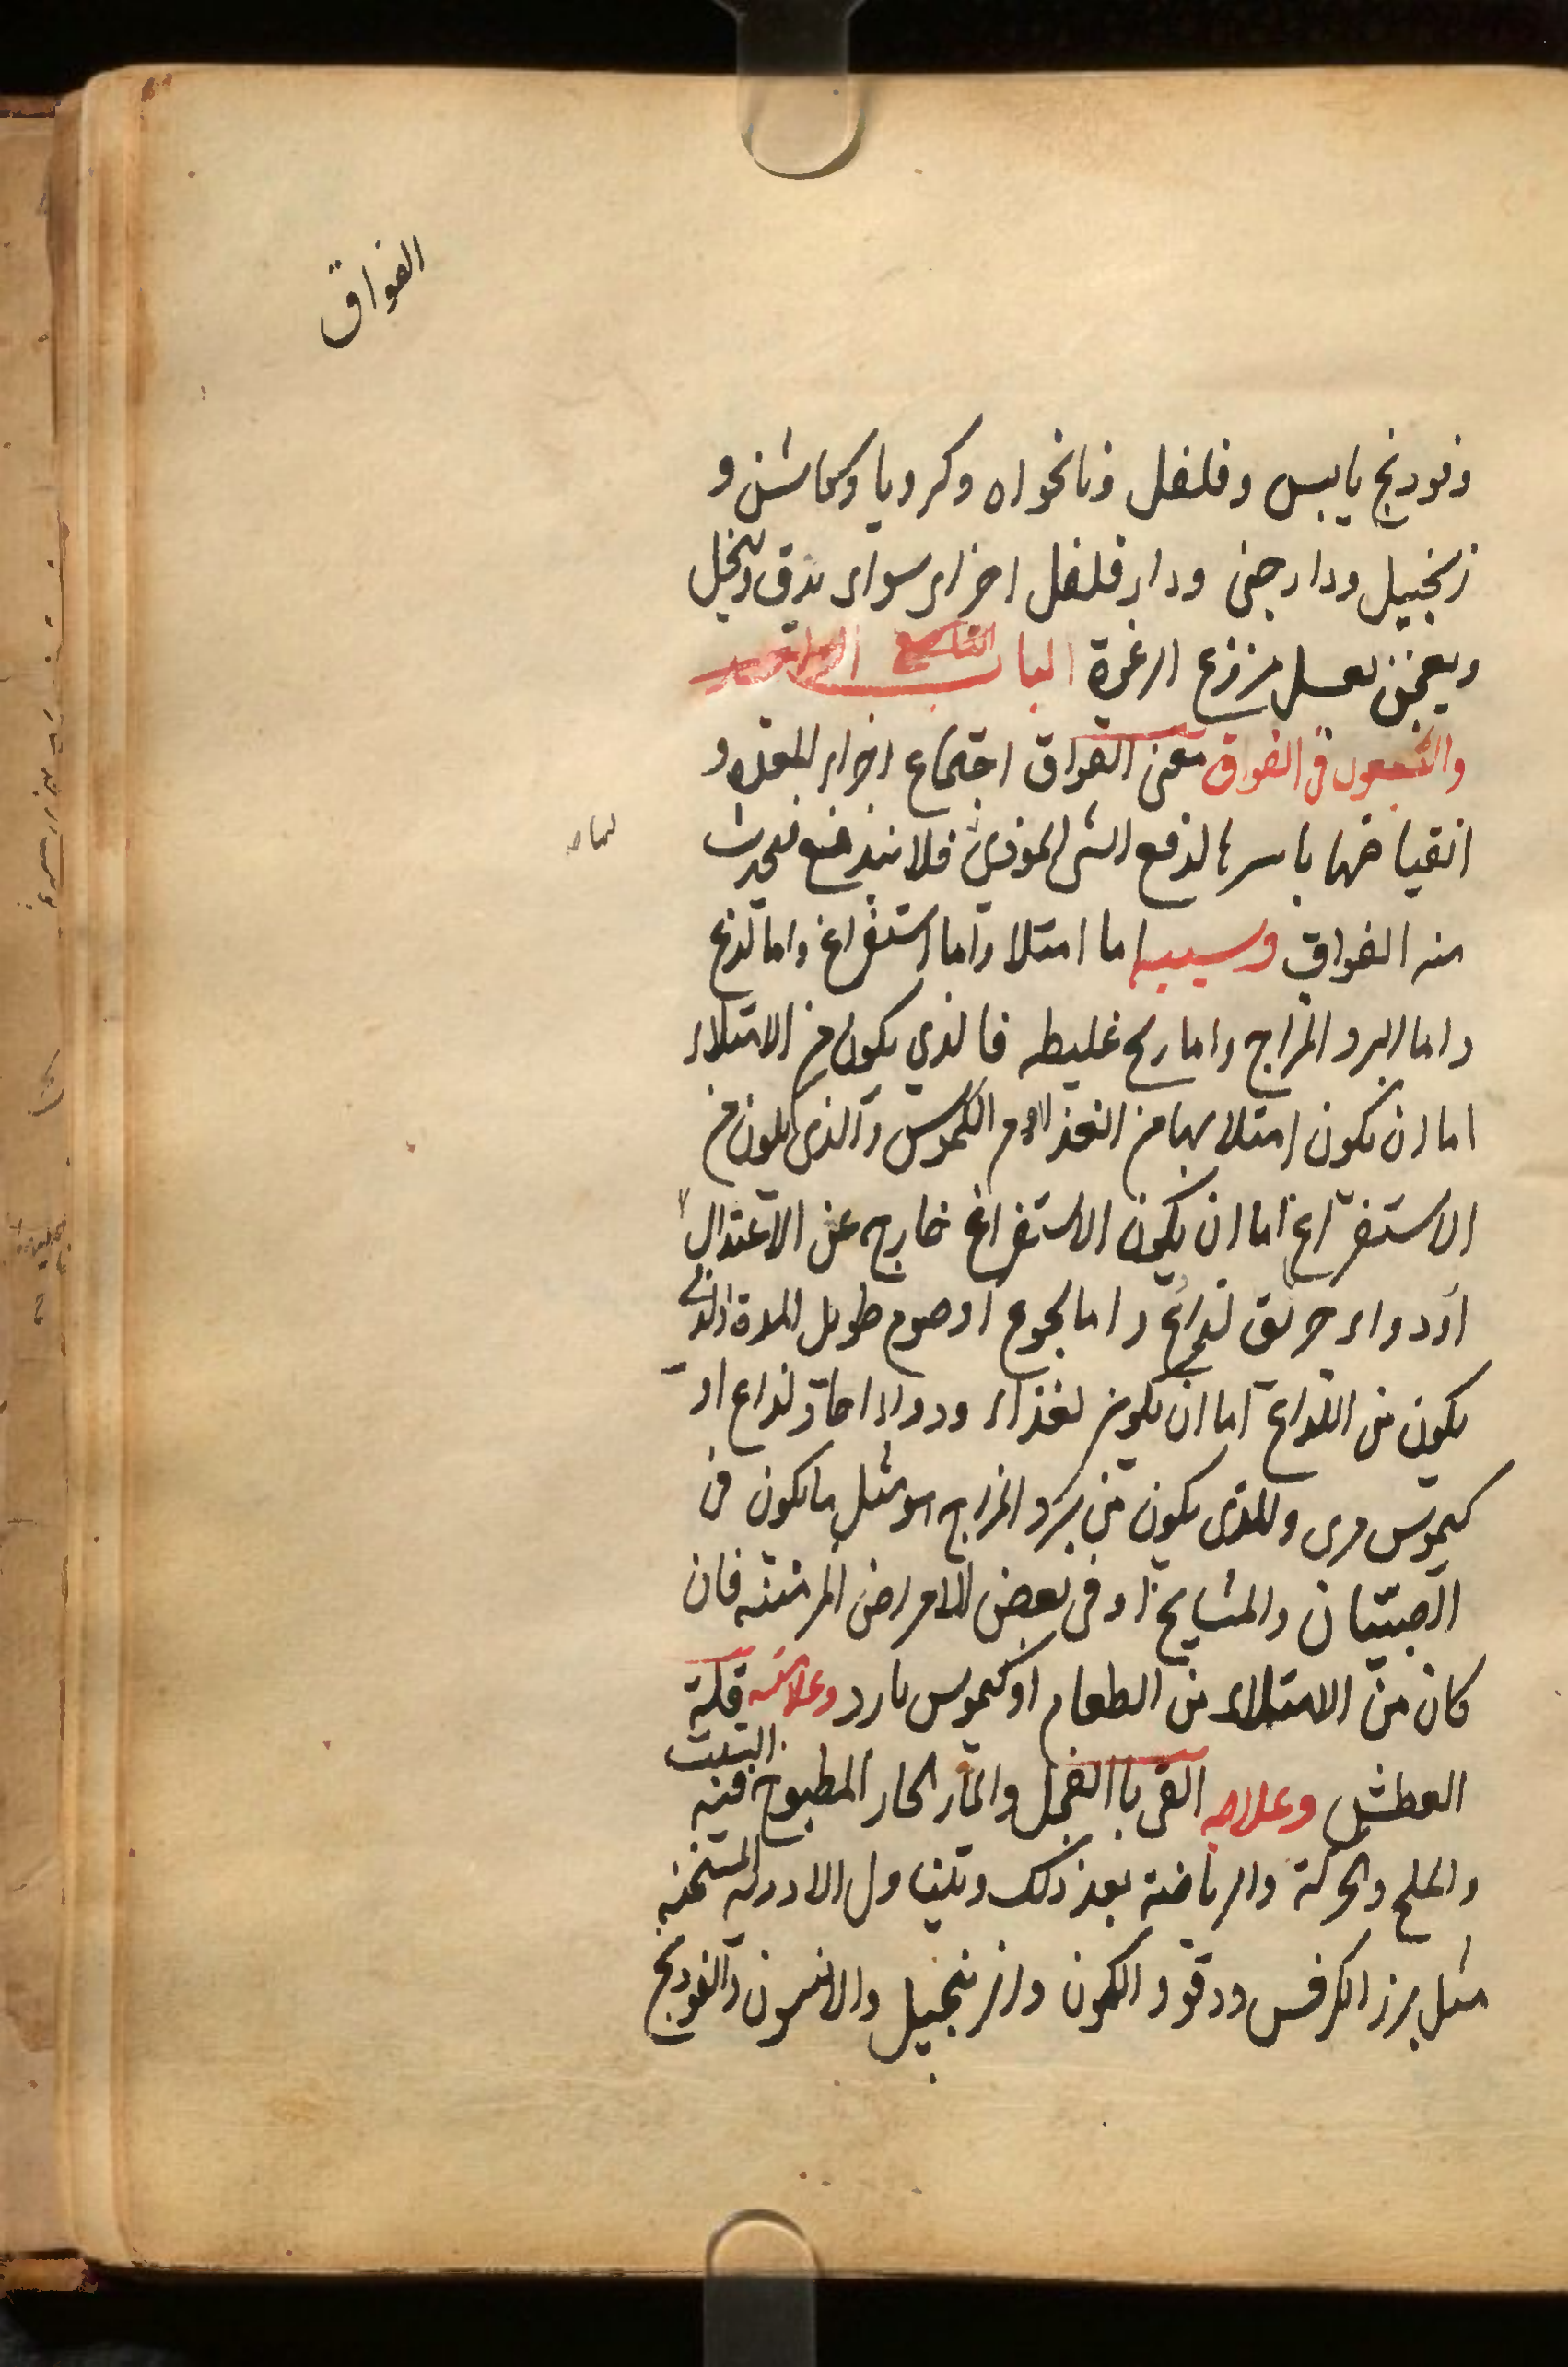 الفواق
وفودنج يابس وفلفل ونانخواه وكرويا وكاشن و
زنجبيل ودارجنى ودار فلفل اجزاء سواء يدق وينخل
ويعجن بعسل منزوع الرغوة الباب التاسع
والتسعون فى الفواق معنى الفواق اجتماع اجزاء المعده و
انقباضها باسرها لدفع الشى الموذى فلا يندفع فيحدث
منه الفواق وسببه اما امتلا واما استفراغ واما لذع
واما لبرد المزاج واما ريح غليظه فالذي يكون من الامتلاء
اما ان يكون امتلا بها من الغذا او من الكموس والذى يكون من
الاستفراغ اما ان يكون الاستفراغ خارج عن الاعتدال
او دواء حريق لداع واما لجوع او صوم طويل المدة والذى
يكون من اللداع اما ان يكون لغذاء ودواء حاد لداع او
كيموس مرى واللذى يكون من برد المزاج هو مثل ما يكون فى
الصبيان والمشايخ او فى بعض الامراض المزمنه فان
كان من الامتلاء من الطعام او كيموس بارد وعلامته قلة
العطش وعلاجه القى باالفجل والماء الحار المطبوخ فيه الشبت
والملح والحركة والرياضة بعد ذلك وتناول الادويه المسخنه
مثل بزر الكرفس ودقو والكمون والزنجبيل والانسون والفودنج